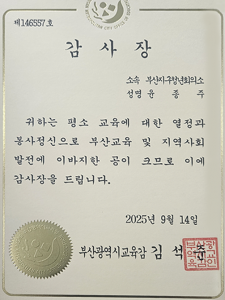 제146557호
감사장
소속 부산지구청년회의소
성명 윤종주
귀하는 평소 교육에 대한 열정과
봉사정신으로 부산교육 및 지역사회
발전에 이바지한 공이 크므로 이에
감사장을 드립니다.
2025년 9월 14일
부산광역시교육감 김석준